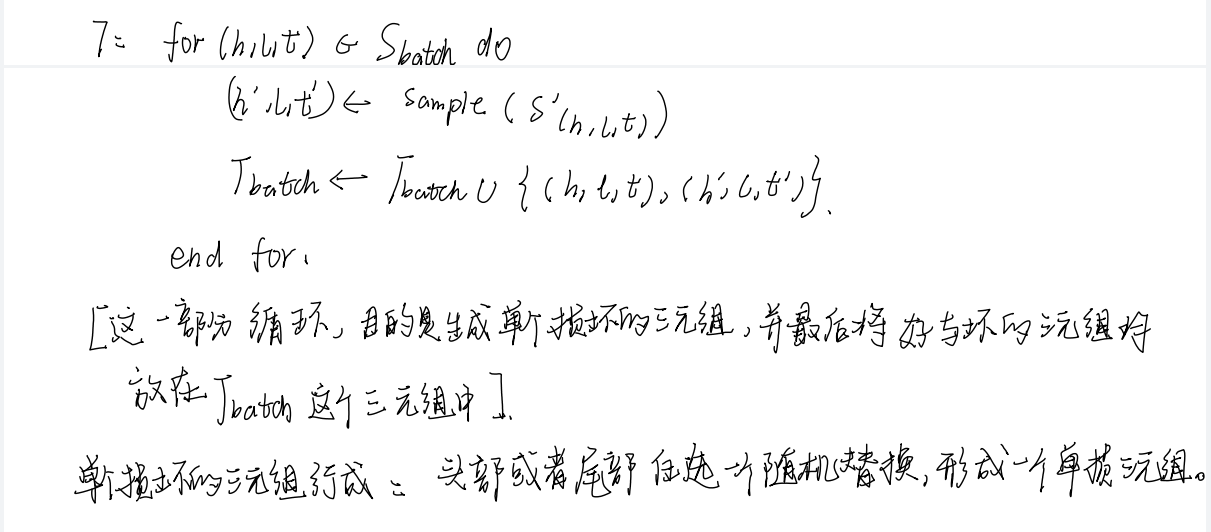 7: for (h,l,t) ∈ Sbatch do
(h',l,t') ← sample (S'(h,l,t))
Tbatch ← Tbatch ∪ {(h,l,t),(h',l,t')}.
end for.
[这一部分循环,目的是生成单个损坏的三元组,并最后将好与坏的三元组对
放在Tbatch 这个三元组中].
单个损坏的三元组形成: 头部或者尾部任选一个随机替换,形成一个单损三元组。